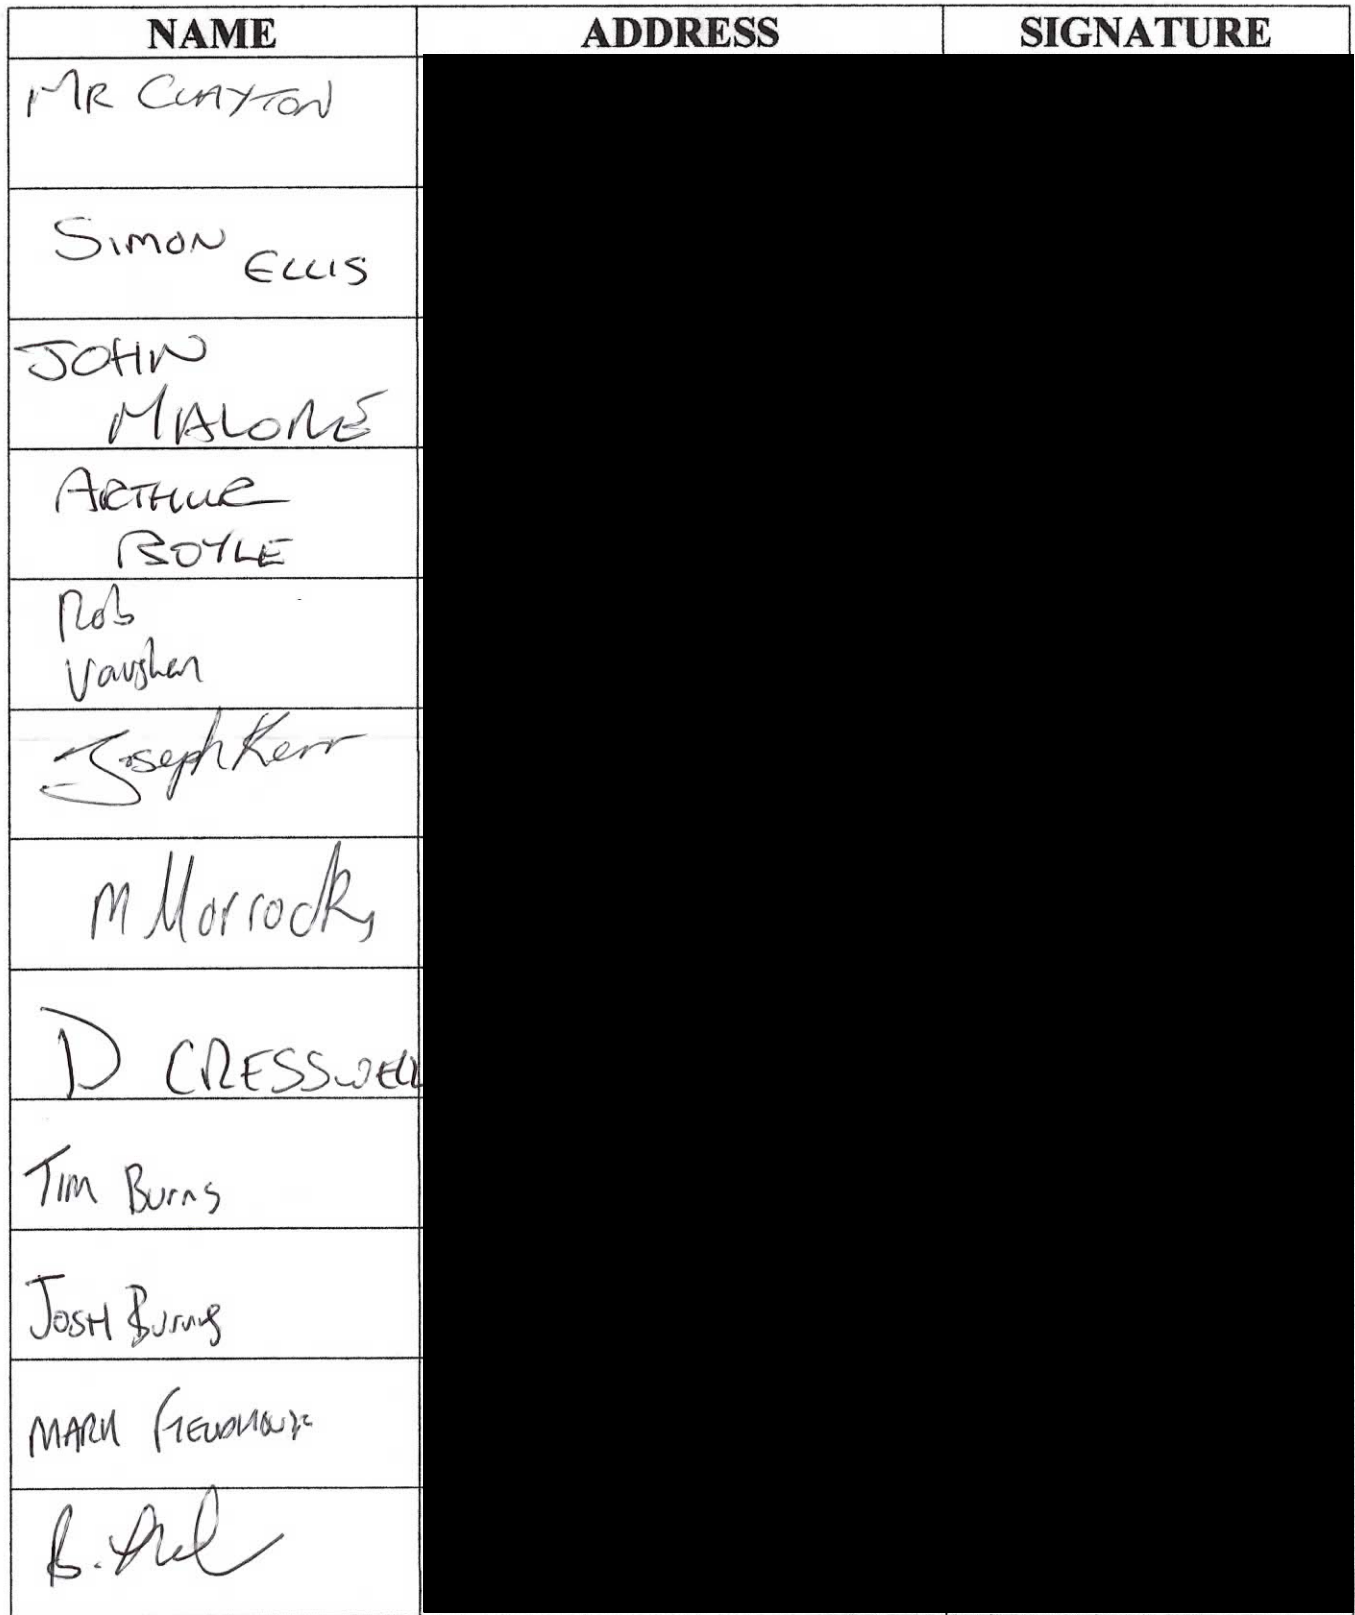 NAME ADDRESS SIGNATURE
MR CLAYTON
SIMON ELLIS
JOHN
MALONE
ARTHUR
BOYLE
Rob
Vaughan
Joseph Kerr
M Horrocks
D CRESSWELL
TIM Burns
JOSH Burns
MARK
B.